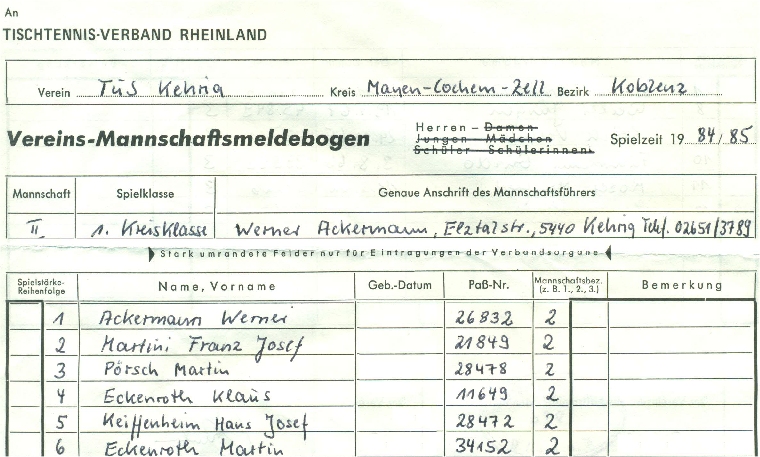 An
TISCHTENNIS-VERBAND RHEINLAND
Verein TuS Kehrig Kreis Mayen-Cochem-Zell Bezirk Koblenz
Vereins-Mannschaftsmeldebogen
Herren – Damen
Jungen – Mädchen
Schüler – Schülerinnen
Spielzeit 19 84/85
Mannschaft Spielklasse Genaue Anschrift des Mannschaftsführers
II. 1. Kreisklasse Werner Ackermann, Elztalstr., 5440 Kehrig Telf. 02651/3789
Stark umrandete Felder nur für Eintragungen der Verbandsorgane
Spielstärke-Reihenfolge Name, Vorname Geb.-Datum Paß-Nr. Mannschaftsbez. (z. B. 1., 2., 3.) Bemerkung
1 Ackermann Werner 26832 2
2 Martini Franz Josef 21849 2
3 Pörsch Martin 28478 2
4 Eckenroth Klaus 11649 2
5 Keiffenheim Hans Josef 28472 2
6 Eckenroth Martin 34152 2